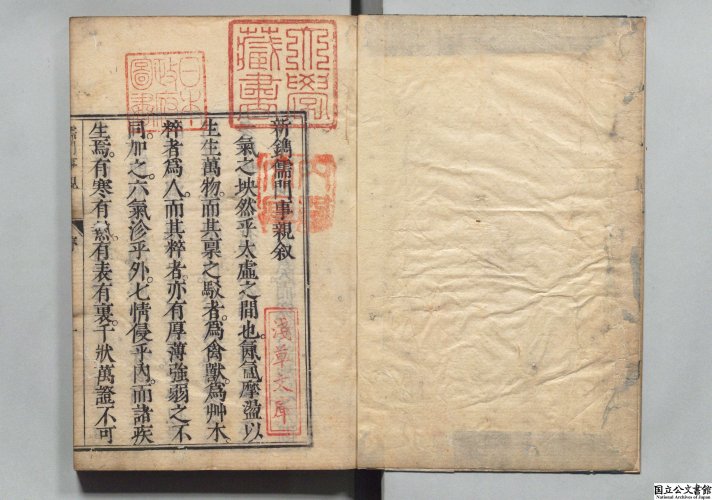 新鐫儒門事親叙
氣之坱然乎太虛之間也氤氳摩盪以
生生萬物而其稟之駁者爲禽獸爲艸木
粹者爲人而其粹者亦有厚薄強弱之不
同加之六氣沴乎外七情侵乎內而諸疾
生焉有寒有熱有表有裏千狀萬證不可
大學藏書
日本政府圖書
淺草文庫
国立公文書館
National Archives of Japan